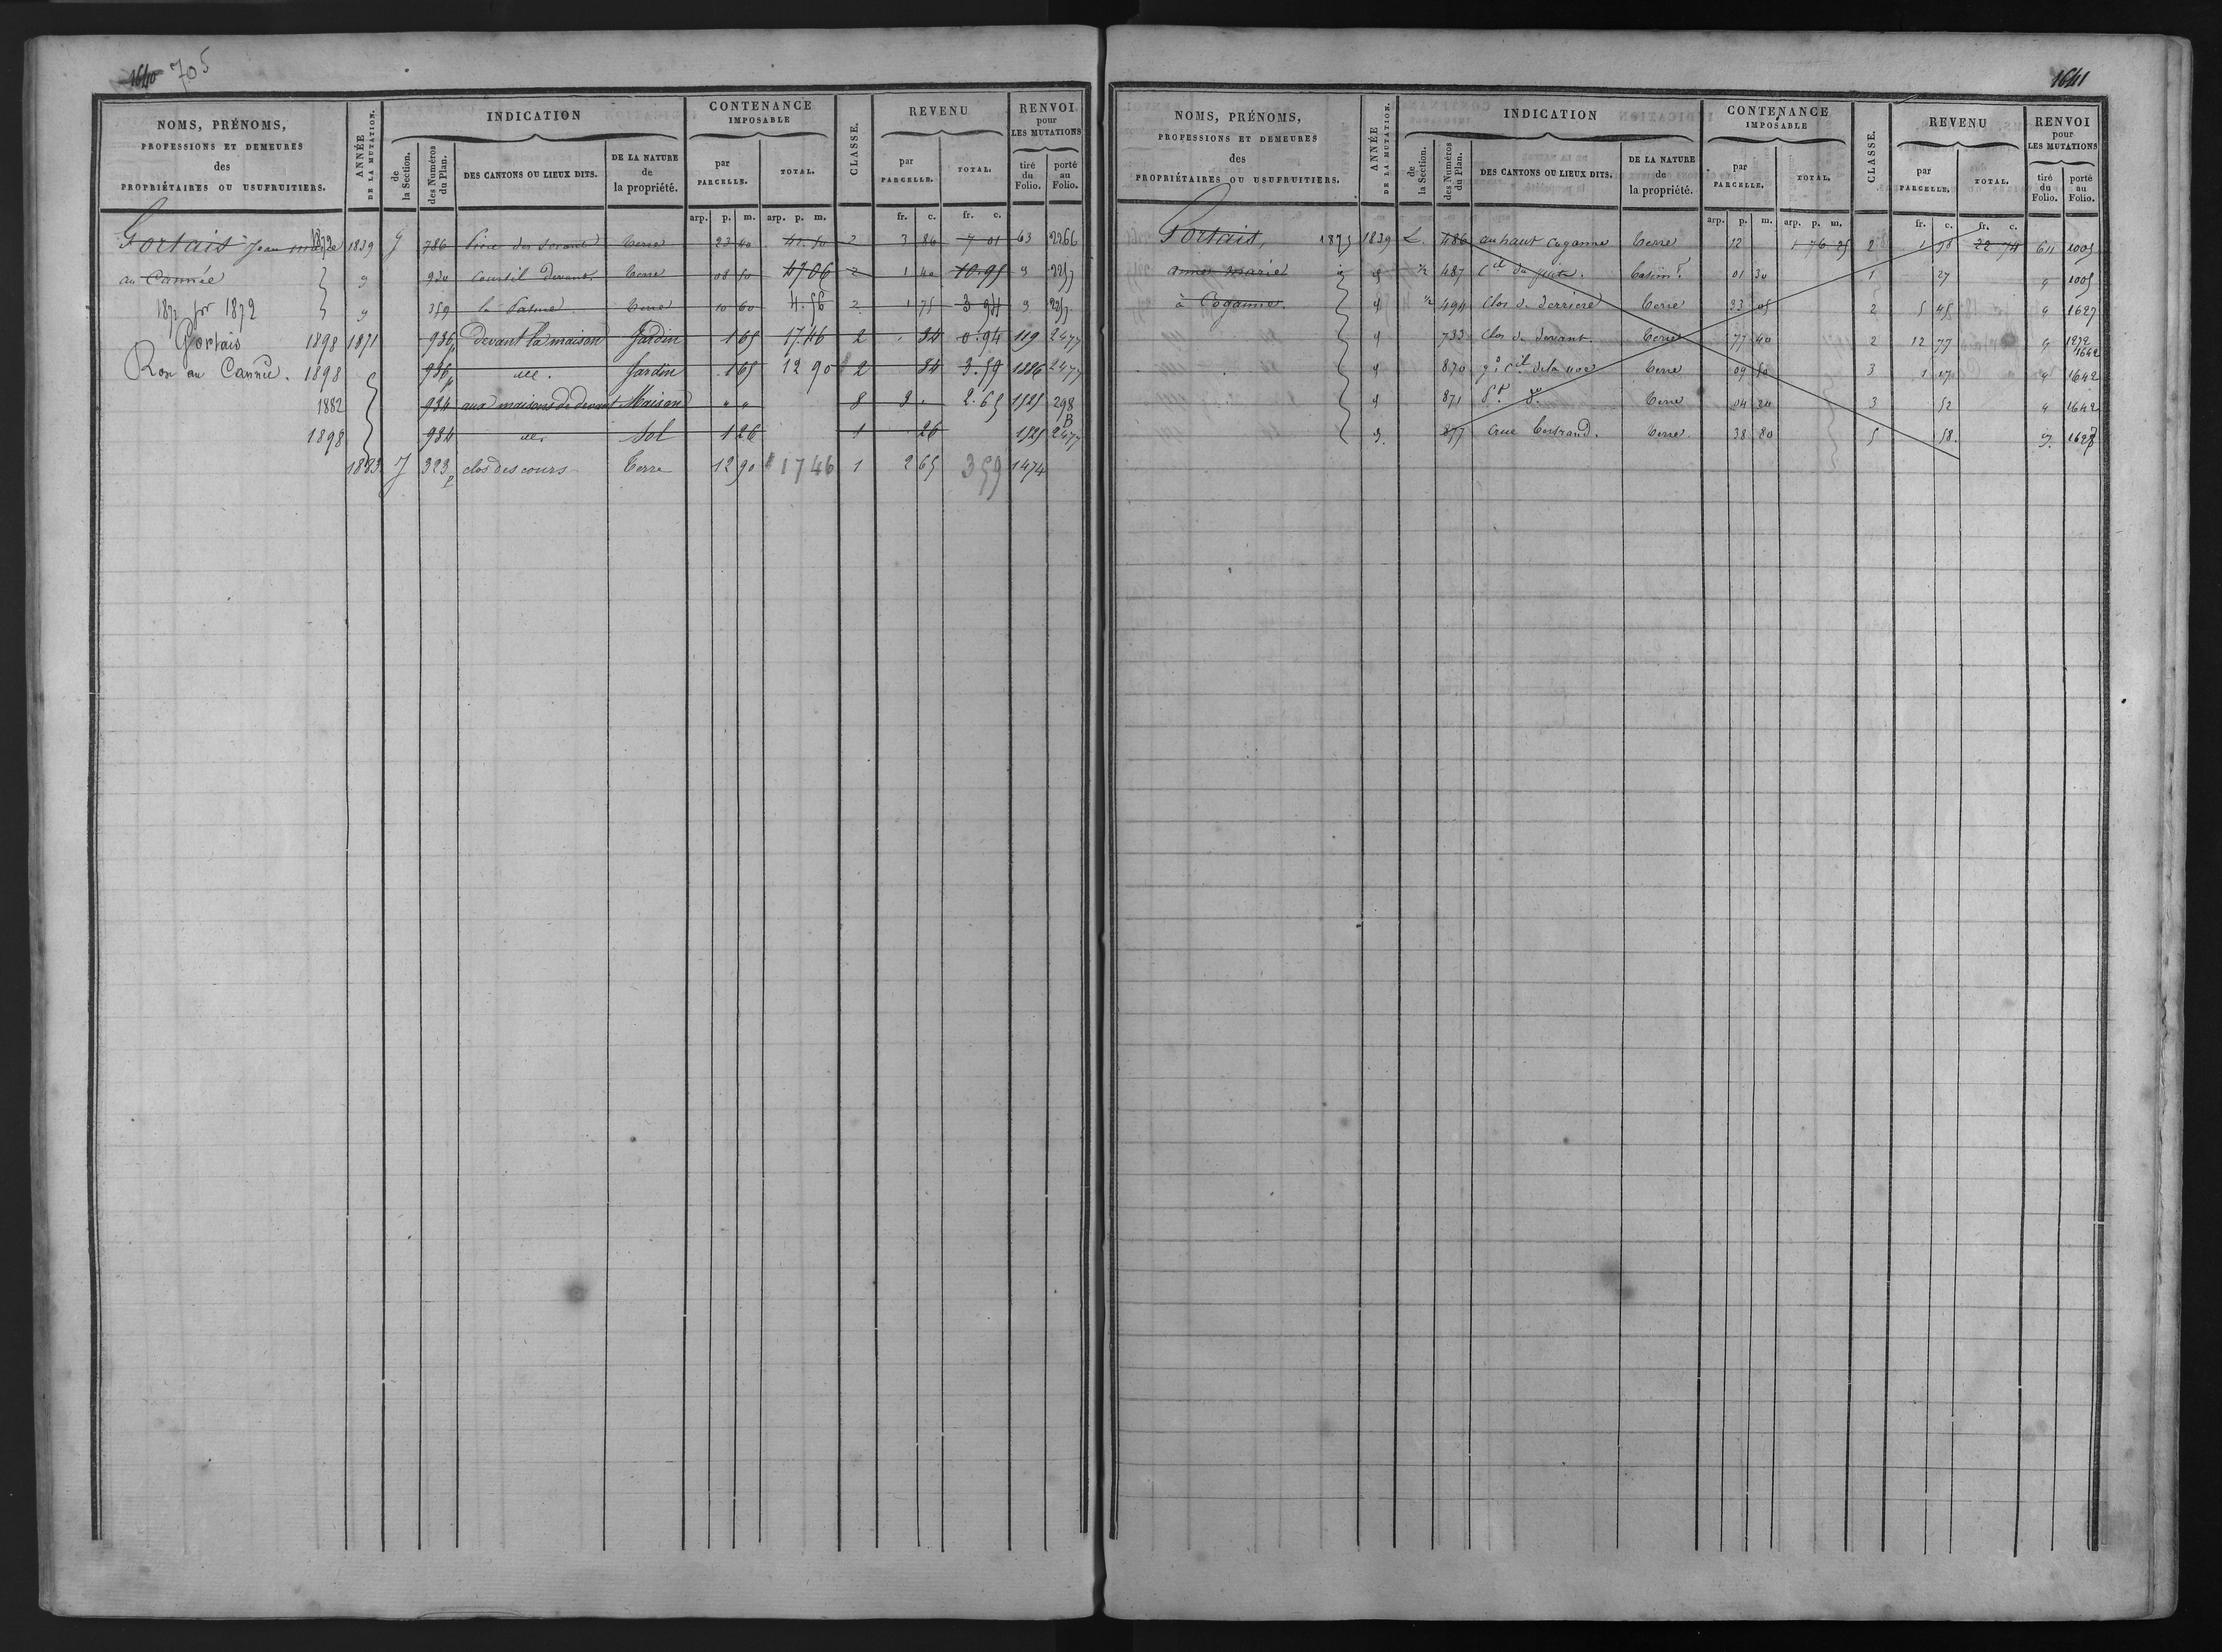 1640 705
NOMS, PRÉNOMS,
PROFESSIONS ET DEMEURES
des
PROPRIÉTAIRES OU USUFRUITIERS.
ANNÉE
DE LA MUTATION.
INDICATION
de
la Section.
des Numéros
du Plan.
DES CANTONS OU LIEUX DITS.
DE LA NATURE
de
la propriété.
CONTENANCE
IMPOSABLE
par
PARCELLE.
TOTAL.
CLASSE.
REVENU
par
PARCELLE.
TOTAL.
RENVOI
pour
LES MUTATIONS
tiré
du
Folio.
porté
au
Folio.
arp. p. m. arp. p. m. fr. c. fr. c.
Gortais Jean 1872 1839 G 786 Terre 23 40 41.50 2 3 86 7 01 63 2266
au Cannée 920 courtil Devant Terre 08 50 17 06 2 1 40 10.95
1872 359 Terre 10 60 4.56 2 1 75
Gortais 1898 1871 936p Devant la maison Jardin 1 65 17.46 2 34 0.94 119 2477
Rose au Cannée. 1898 936p Jardin 1 65 12 90 2 34 3.59 1226 2477
1882 934 aux maisons de devant Maison " " 8 3 " 2.65 1525 298
1898 934 Sol 1 26 1 26 1525 2477
1883 J 323p clos des cours Terre 12 90 17 46 1 2 65 3 59 1474
1641
NOMS, PRÉNOMS,
PROFESSIONS ET DEMEURES
des
PROPRIÉTAIRES OU USUFRUITIERS.
ANNÉE
DE LA MUTATION.
INDICATION
de
la Section.
des Numéros
du Plan.
DES CANTONS OU LIEUX DITS.
DE LA NATURE
de
la propriété.
CONTENANCE
IMPOSABLE
par
PARCELLE.
TOTAL.
CLASSE.
REVENU
par
PARCELLE.
TOTAL.
RENVOI
pour
LES MUTATIONS
tiré
du
Folio.
porté
au
Folio.
arp. p. m. arp. p. m. fr. c. fr. c.
Gortais, 1839 L. 486 au haut Coganne Terre 12 1 76 25 2 1 98 22 74 611 1005
anne marie ½ 487 01 30 1 27 1005
à Coganne. ½ 494 clos de derriere Terre 33 05 2 5 45 1627
733 clos de devant. Terre 77 40 2 12 77 1642
870 Terre 09 50 3 1 17 1642
871 Terre 04 20 3 52 1642
877 Terre 38 80 5 58